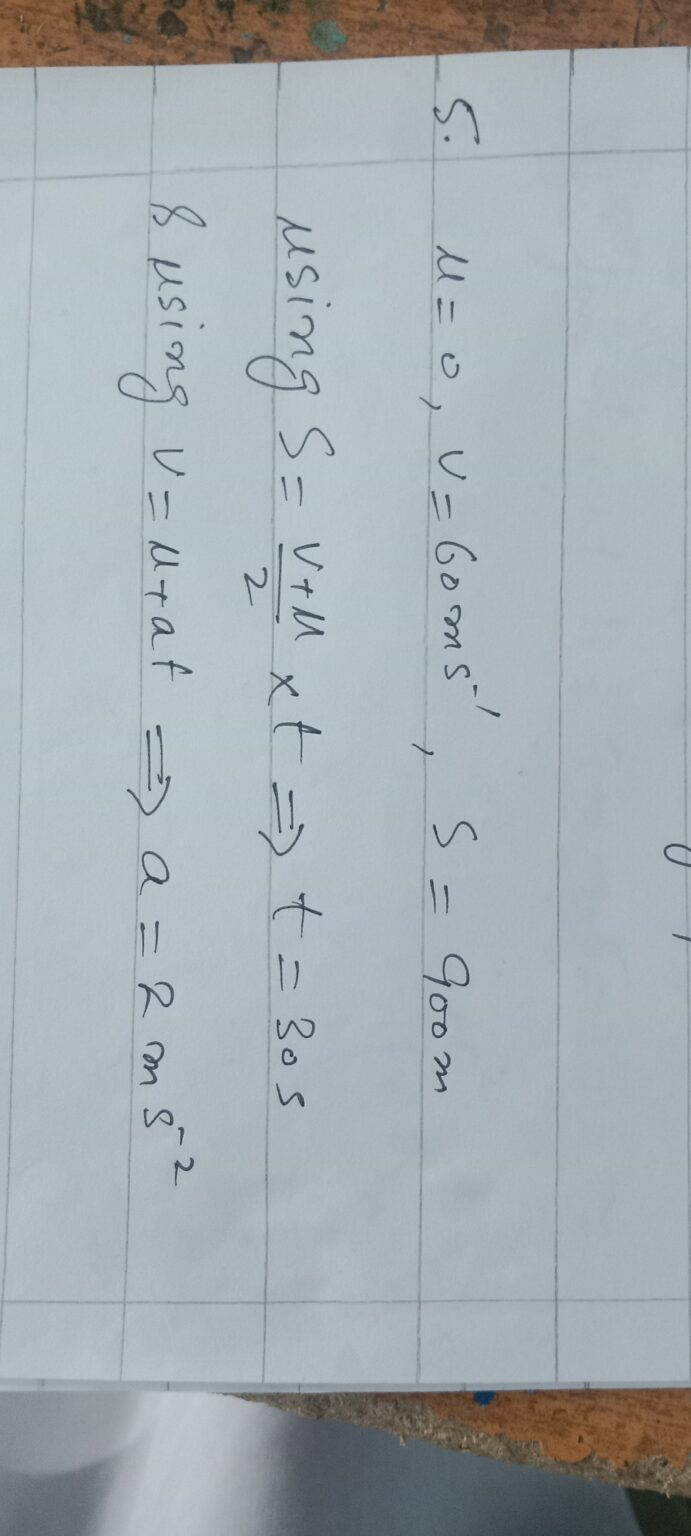 5. u = 0, v = 60 ms⁻¹, S = 900m
using S = (v+u)/2 × t ⇒ t = 30 s
& using v = u + at ⇒ a = 2 ms⁻²